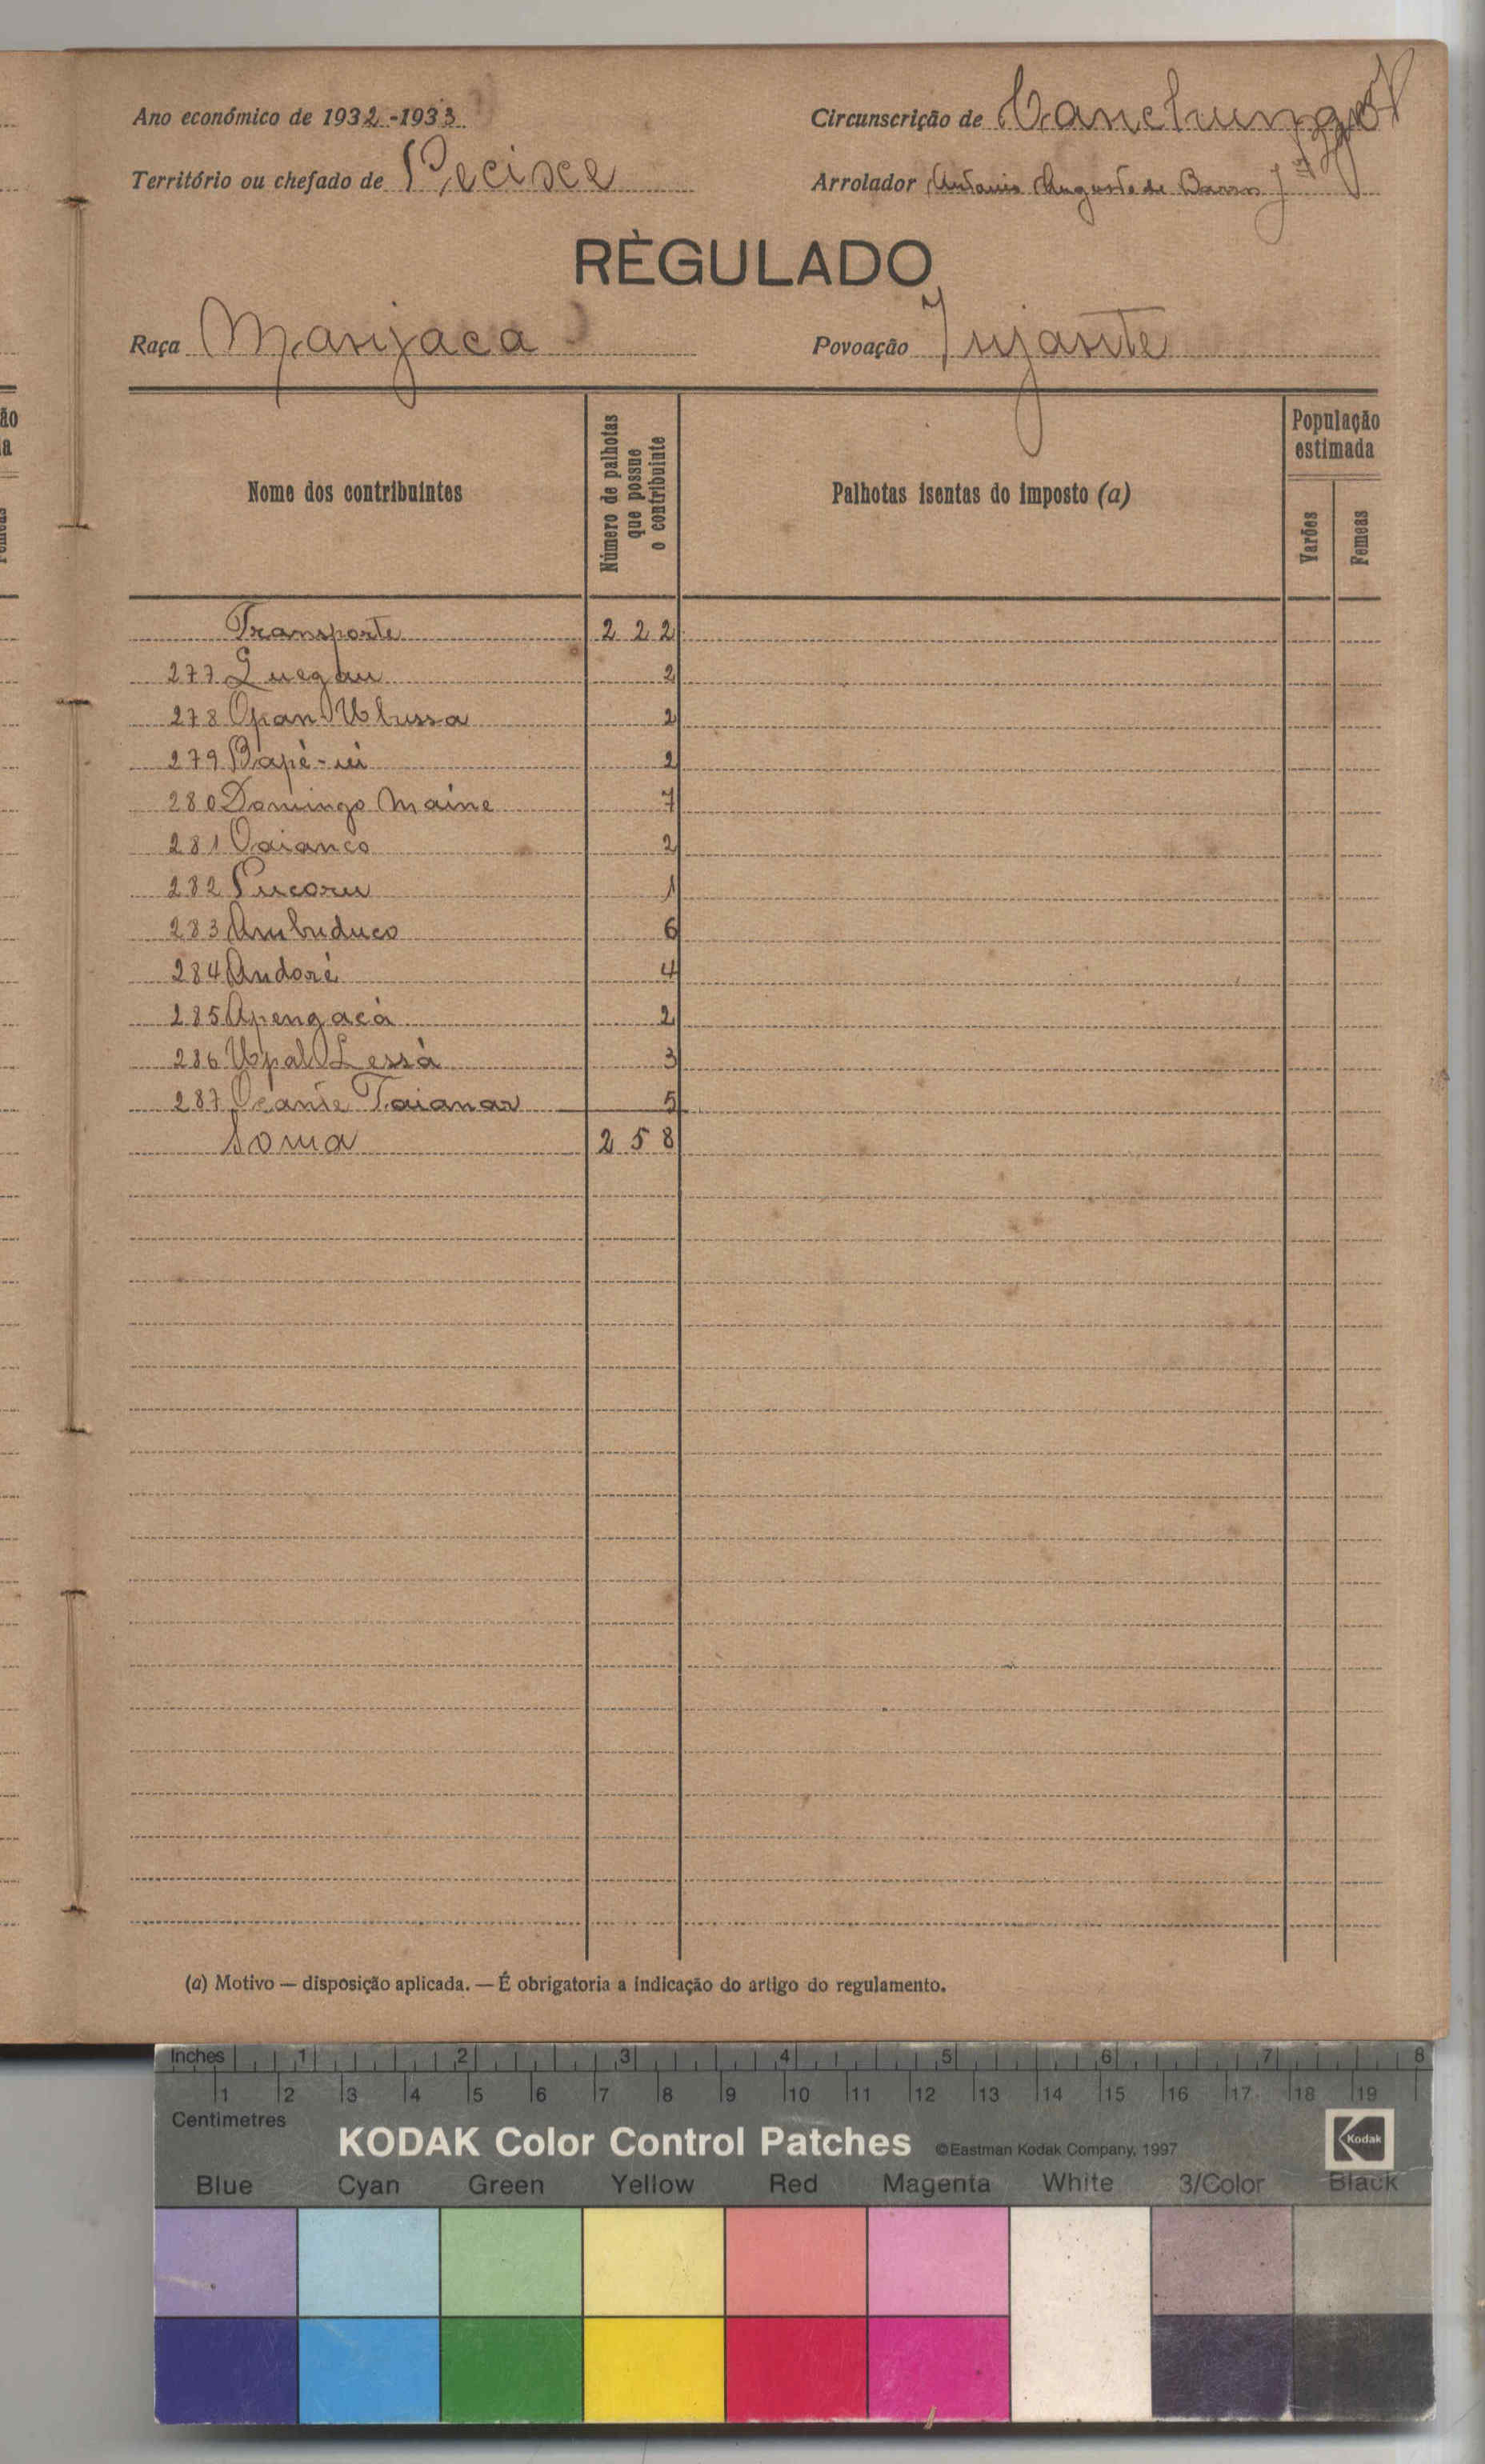 Ano económico de 1932-1933
Circunscrição de Canchungo
Território ou chefado de Pecisse
Arrolador Antonio Augusto de Barros Jor
RÈGULADO
Raça Manjaca
Povoação Injante
Nome dos contribuintes
Número de palhotas que possue o contribuinte
Palhotas isentas do imposto (a)
População estimada
Varões
Femeas
Transporte 222
277 Quegau 2
278 Opan Ublussa 2
279 Bapé-iéi 2
280 Domingo Maine 7
281 Oaianco 2
282 Pucoru 1
283 Ambuduco 6
284 Andoré 4
285 Apengacà 2
286 Upal Lessà 3
287 Ocante Taianar 5
Soma 258
(a) Motivo — disposição aplicada. — É obrigatoria a indicação do artigo do regulamento.
Inches 1 2 3 4 5 6 7 8
1 2 3 4 5 6 7 8 9 10 11 12 13 14 15 16 17 18 19
Centimetres
KODAK Color Control Patches ©Eastman Kodak Company, 1997 Kodak
Blue Cyan Green Yellow Red Magenta White 3/Color Black